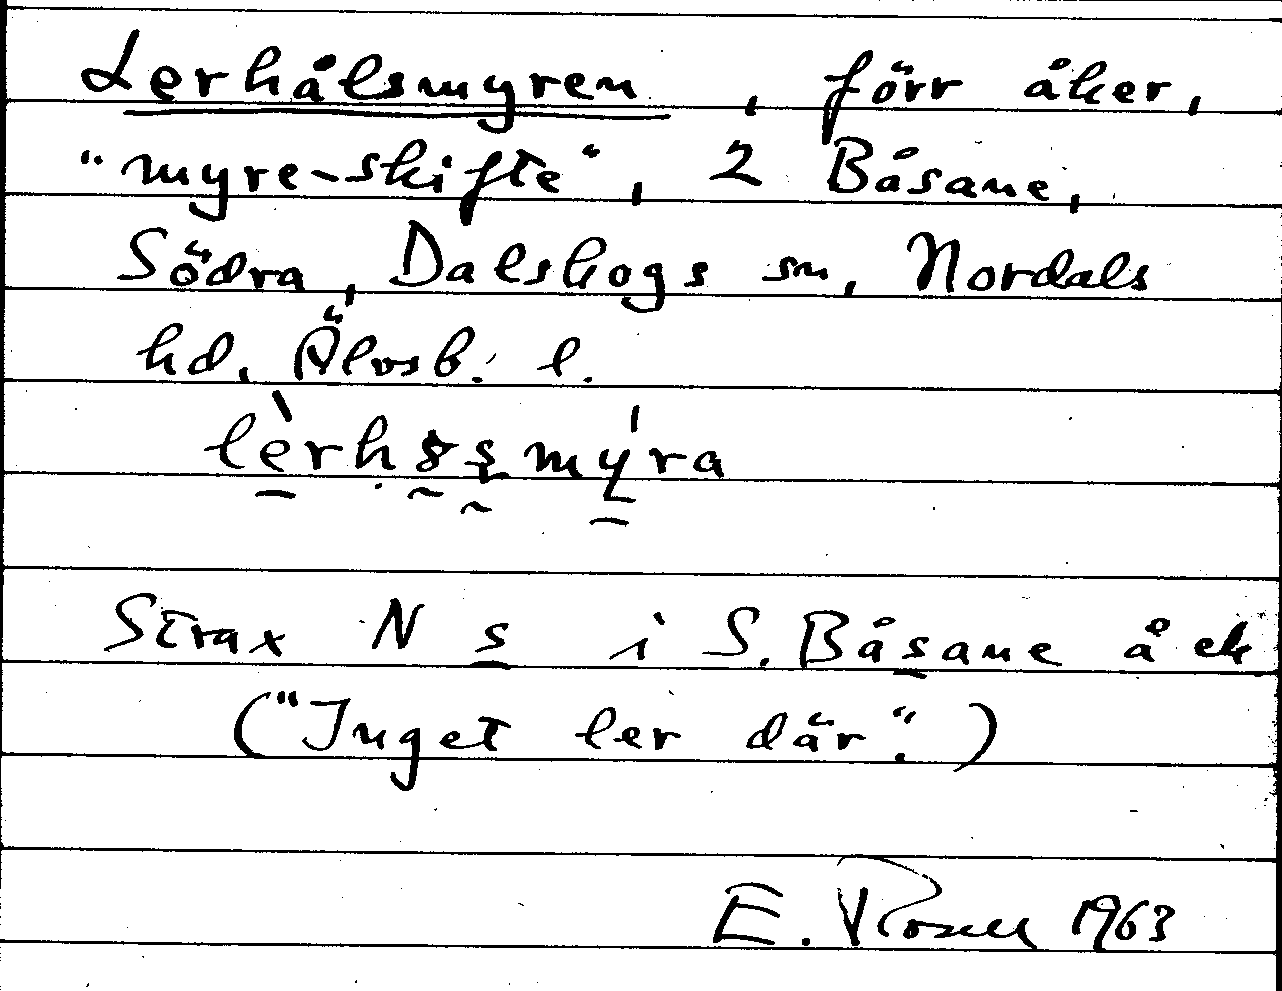 Lerhålsmyren, förr åker,
"myre-skifte", 2 Båsane,
Södra, Dalskogs sn, Nordals
hd. Älvsb. l.
Strax N s i S. Båsane å ek
("Inget ler där".)
E. Rosell 1963